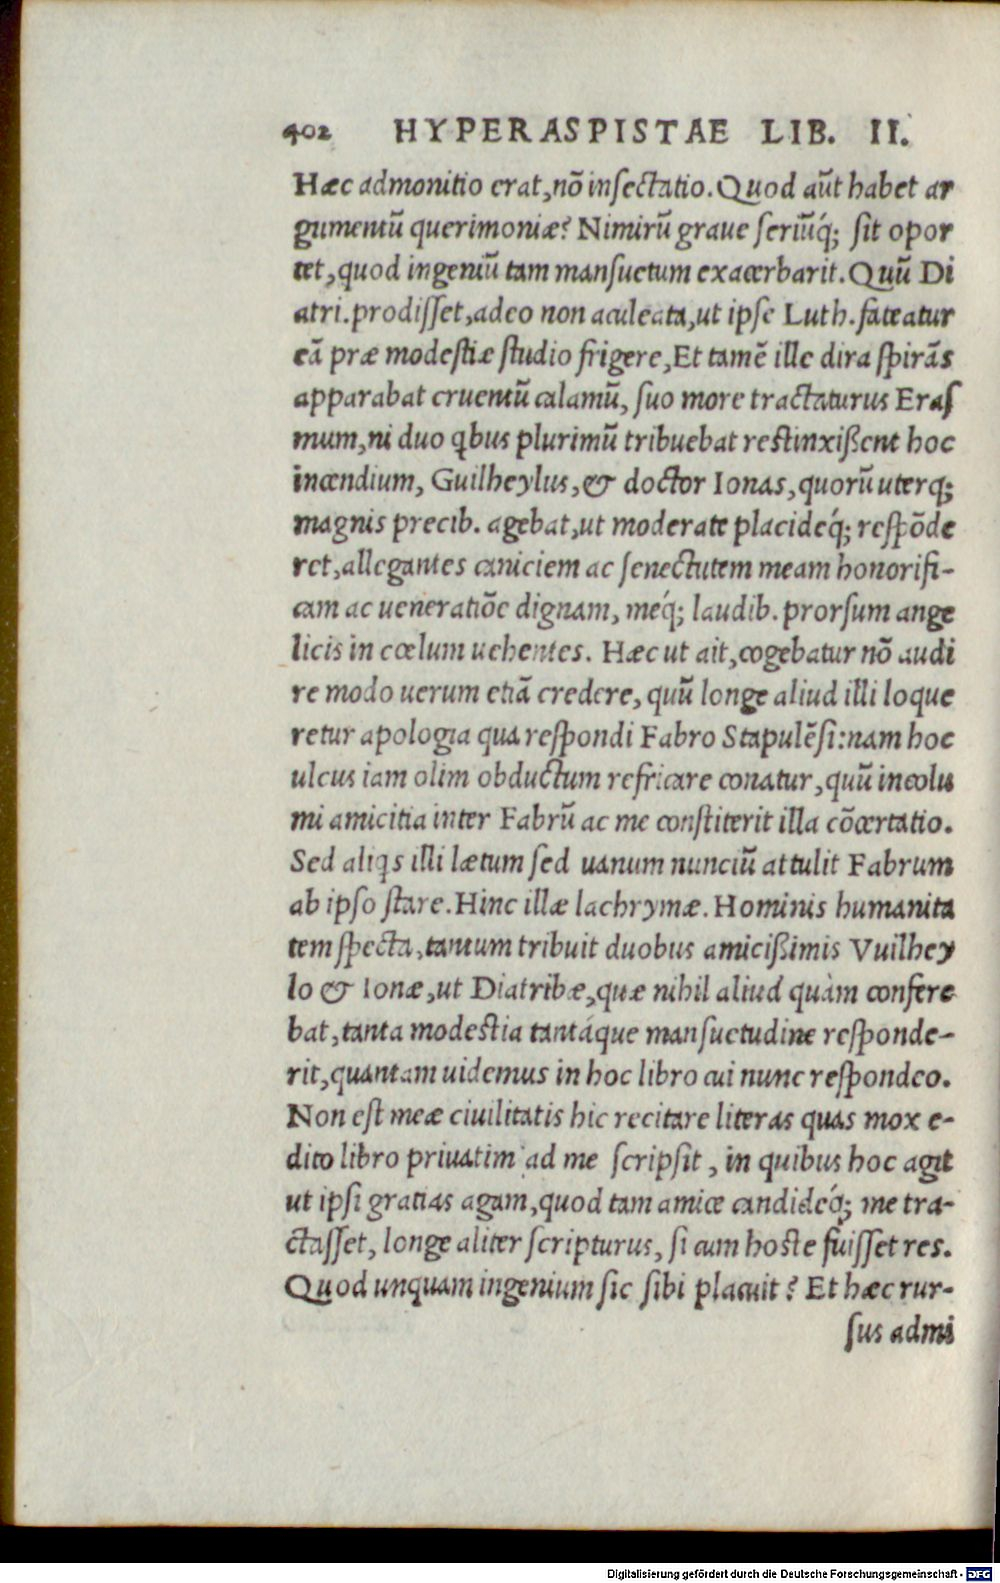 402 HYPERASPISTAE LIB. II.
Hæc admonitio erat, nõ insectatio. Quod aũt habet ar
gumentũ querimoniæ? Nimirũ graue seriũq́; sit opor
tet, quod ingeniũ tam mansuetum exacerbarit. Quũ Di
atri. prodisset, adeo non aculeata, ut ipse Luth. fateatur
eã præ modestiæ studio frigere, Et tamẽ ille dira spirãs
apparabat cruentũ calamũ, suo more tractaturus Eras
mum, ni duo qbus plurimũ tribuebat restinxißent hoc
incendium, Guilheylus, & doctor Ionas, quorũ uterq;
magnis precib. agebat, ut moderate placideq́; respõde
ret, allegantes caniciem ac senectutem meam honorifi-
cam ac ueneratiõe dignam, meq́; laudib. prorsum ange
licis in cœlum uehentes. Hæc ut ait, cogebatur nõ audi
re modo uerum etiã credere, quũ longe aliud illi loque
retur apologia qua respondi Fabro Stapulẽsi: nam hoc
ulcus iam olim obductum refricare conatur, quũ incolu
mi amicitia inter Fabrũ ac me constiterit illa cõcertatio.
Sed aliqs illi lætum sed uanum nunciũ attulit Fabrum
ab ipso stare. Hinc illæ lachrymæ. Hominis humanita
tem specta, tantum tribuit duobus amicißimis Vuilhey
lo & Ionæ, ut Diatribæ, quæ nihil aliud quàm confere
bat, tanta modestia tantáque mansuetudine responde-
rit, quantam uidemus in hoc libro cui nunc respondeo.
Non est meæ ciuilitatis hic recitare literas quas mox e-
dito libro priuatim ad me scripsit, in quibus hoc agit
ut ipsi gratias agam, quod tam amice candideq́; me tra-
ctasset, longe aliter scripturus, si cum hoste fuisset res.
Quod unquam ingenium sic sibi placuit? Et hæc rur-
sus admi
Digitalisierung gefördert durch die Deutsche Forschungsgemeinschaft - DFG